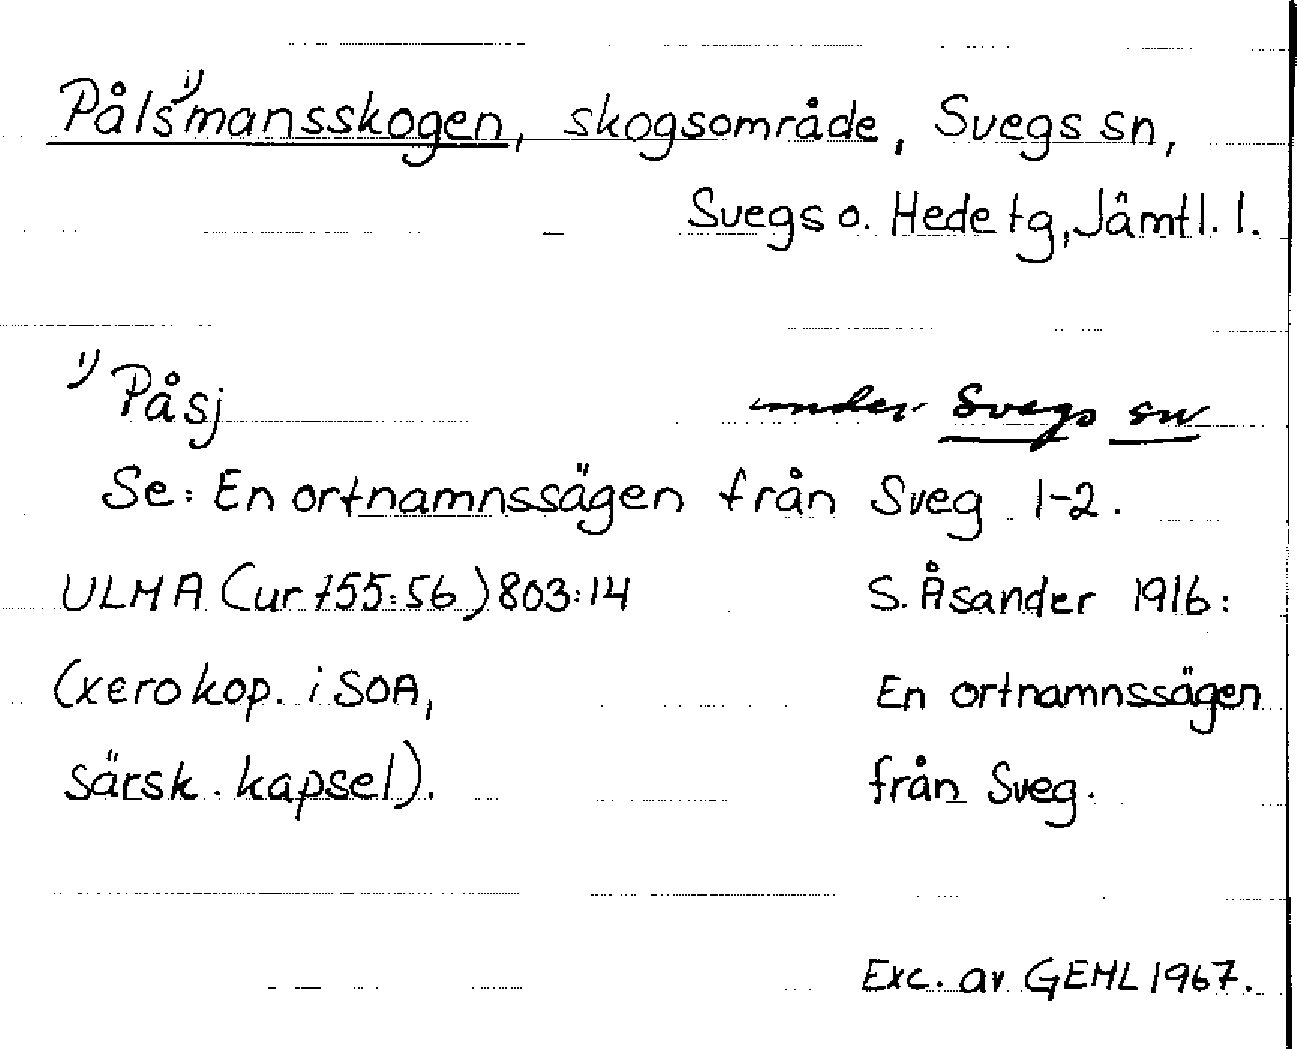 Påls¹⁾mansskogen, skogsområde, Svegs sn,
Svegs o. Hede tg, Jämtl. l.
¹⁾ Påsj
under Svegs sn
Se: En ortnamnssägen från Sveg 1-2.
ULMA (ur 155:56) 803:14
(xerokop. i SOA,
särsk. kapsel).
S. Åsander 1916:
En ortnamnssägen
från Sveg.
Exc. av GEHL 1967.